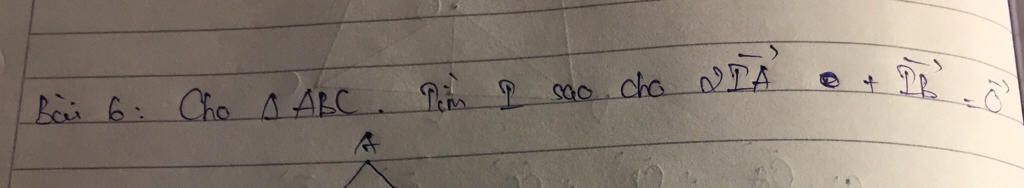 Bài 6: Cho Δ ABC. Tìm I sao cho 2IA⃗ + IB⃗ = 0⃗
A